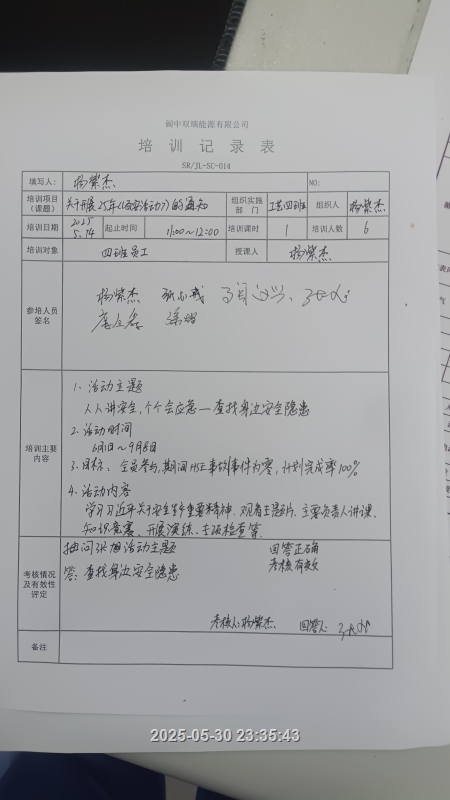 阆中双瑞能源有限公司
培训记录表
SR/JL-SC-014
填写人: 杨紫杰 NO:
培训项目(课题) 关于开展25年《安全活动月》的通知 组织实施部门 工艺四班 组织人 杨紫杰
培训日期 2025 5.14 起止时间 11:00~12:00 培训课时 1 培训人数 6
培训对象 四班员工 授课人 杨紫杰
参培人员签名
杨紫杰
培训主要内容
1、活动主题
人人讲安全,个个会应急—查找身边安全隐患
2、活动时间
6月1日~9月8日
3、目标:全员参与,期间HSE事故事件为零,计划完成率100%
4、活动内容
学习习近平关于安全生产重要精神、观看主题片、主要负责人讲课、
知识竞赛、开展演练、专项检查等.
考核情况及有效性评定
抽问张旭活动主题 回答正确
答:查找身边安全隐患 考核有效
考核人:杨紫杰 回答人:
备注
2025-05-30 23:35:43